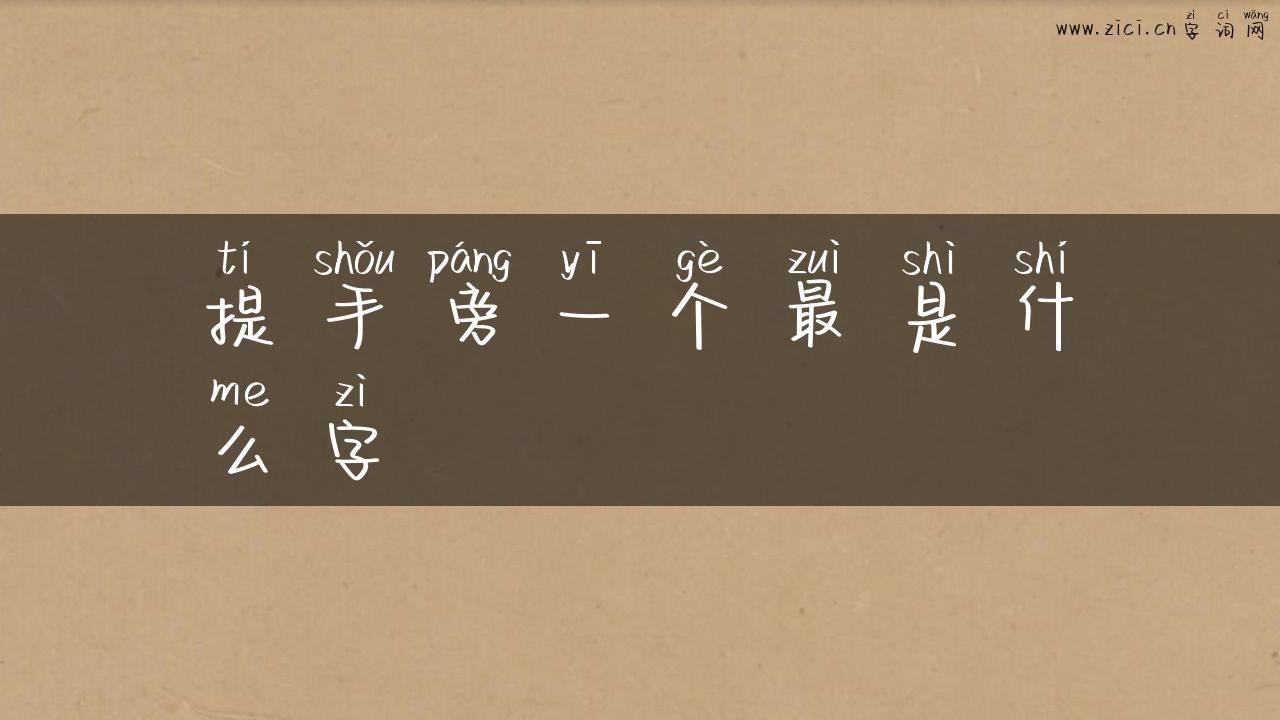 zì cí wǎng
www.zici.cn 字 词 网
tí shǒu páng yī gè zuì shì shí
提 手 旁 一 个 最 是 什
me zì
么 字